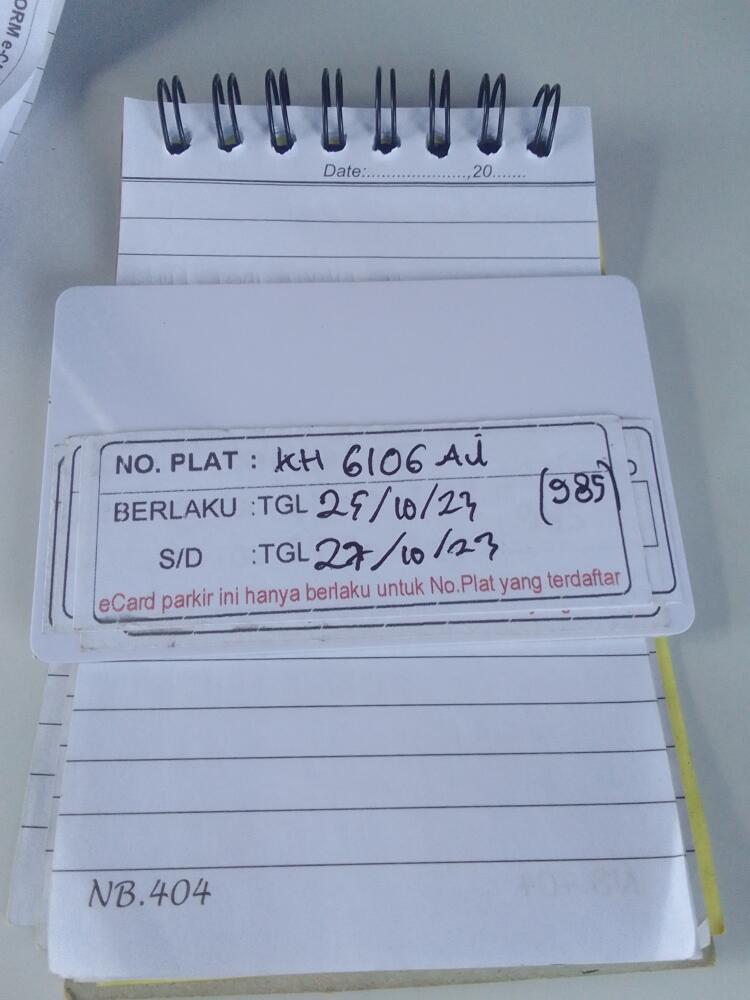 ORM e-C
Date:....................,20.......
NO. PLAT : KH 6106 AU
BERLAKU :TGL 25/10/23 (985)
S/D :TGL 27/10/23
eCard parkir ini hanya berlaku untuk No.Plat yang terdaftar
NB.404